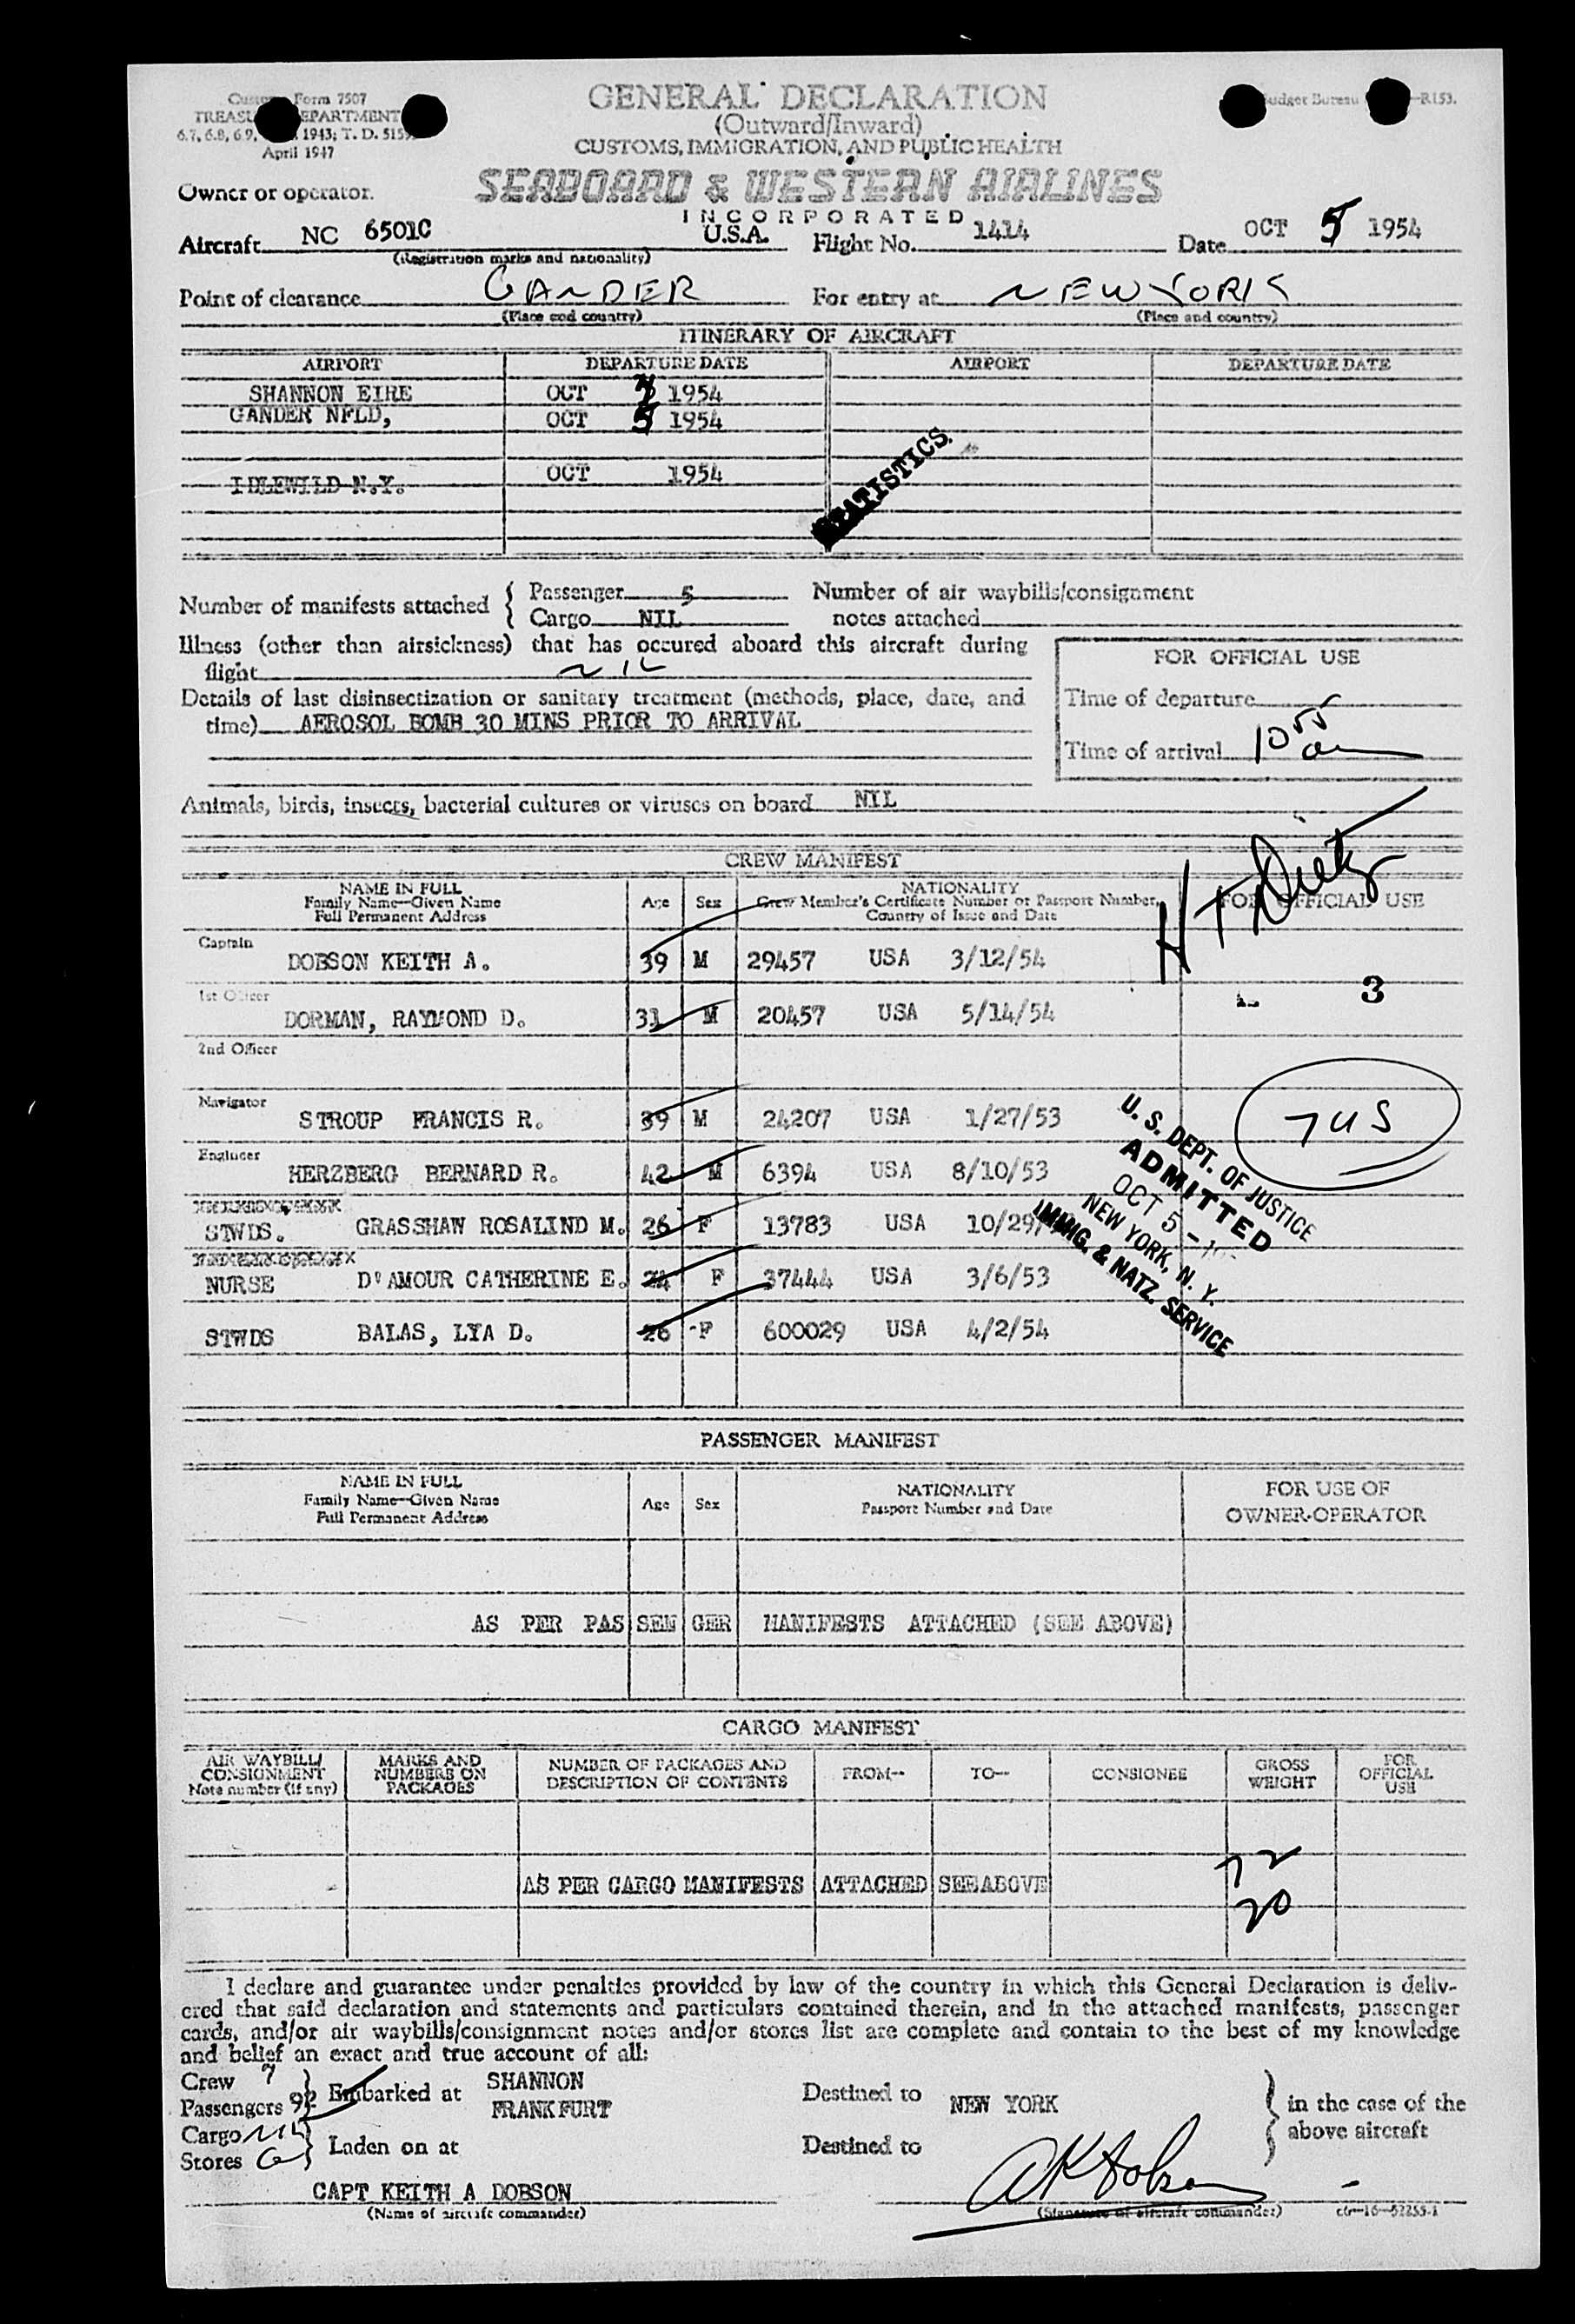 Customs Form 7507
TREASURY DEPARTMENT
6.7, 6.8, 6.9, 1943; T. D. 515
April 1947
Budget Bureau —R153.
GENERAL DECLARATION
(Outward/Inward)
CUSTOMS, IMMIGRATION, AND PUBLIC HEALTH
Owner or operator.
SEABOARD & WESTERN AIRLINES
INCORPORATED
Aircraft NC 6501C U.S.A. Flight No. 1414 Date OCT 5 1954
(Registration marks and nationality)
Point of clearance GANDER For entry at NEW YORK
(Place and country) (Place and country)
ITINERARY OF AIRCRAFT
AIRPORT DEPARTURE DATE AIRPORT DEPARTURE DATE
SHANNON EIRE OCT 1954
GANDER NFLD, OCT 5 1954
IDLEWILD N.Y. OCT 1954
STATISTICS
Number of manifests attached { Passenger 5
Cargo NIL
Number of air waybills/consignment
notes attached
Illness (other than airsickness) that has occured aboard this aircraft during
flight NIL
Details of last disinsectization or sanitary treatment (methods, place, date, and
time) AEROSOL BOMB 30 MINS PRIOR TO ARRIVAL
FOR OFFICIAL USE
Time of departure
Time of arrival 10 55 am
Animals, birds, insects, bacterial cultures or viruses on board NIL
CREW MANIFEST
NAME IN FULL
Family Name—Given Name
Full Permanent Address
Age Sex
NATIONALITY
Crew Member's Certificate Number or Passport Number,
Country of Issue and Date
FOR OFFICIAL USE
H T Dietz
Captain
DOBSON KEITH A. 39 M 29457 USA 3/12/54
1st Officer
DORMAN, RAYMOND D. 31 M 20457 USA 5/14/54
3
2nd Officer
Navigator
STROUP FRANCIS R. 39 M 24207 USA 1/27/53
7 US
Engineer
HERZBERG BERNARD R. 42 M 6394 USA 8/10/53
STWDS. GRASSHAW ROSALIND M. 26 F 13783 USA 10/29/
NURSE D'AMOUR CATHERINE E. 24 F 37444 USA 3/6/53
STWDS BALAS, LYA D. 26 F 600029 USA 4/2/54
U. S. DEPT. OF JUSTICE
ADMITTED
OCT 5 -
NEW YORK, N. Y.
IMMIG. & NATZ. SERVICE
PASSENGER MANIFEST
NAME IN FULL
Family Name—Given Name
Full Permanent Address
Age Sex
NATIONALITY
Passport Number and Date
FOR USE OF
OWNER-OPERATOR
AS PER PASSENGER MANIFESTS ATTACHED (SEE ABOVE)
CARGO MANIFEST
AIR WAYBILL/
CONSIGNMENT
Note number (if any)
MARKS AND
NUMBERS ON
PACKAGES
NUMBER OF PACKAGES AND
DESCRIPTION OF CONTENTS
FROM— TO— CONSIGNEE
GROSS
WEIGHT
FOR
OFFICIAL
USE
AS PER CARGO MANIFESTS ATTACHED SEE ABOVE
72
20
I declare and guarantee under penalties provided by law of the country in which this General Declaration is deliv-
ered that said declaration and statements and particulars contained therein, and in the attached manifests, passenger
cards, and/or air waybills/consignment notes and/or stores list are complete and contain to the best of my knowledge
and belief an exact and true account of all:
Crew 7
Passengers 92
Embarked at SHANNON
FRANKFURT
Destined to NEW YORK
in the case of the
above aircraft
Cargo NIL
Stores
Laden on at
Destined to
CAPT KEITH A DOBSON
(Name of aircraft commander)
AK Dobson
(Signature of aircraft commander)
c6—16—52255-1